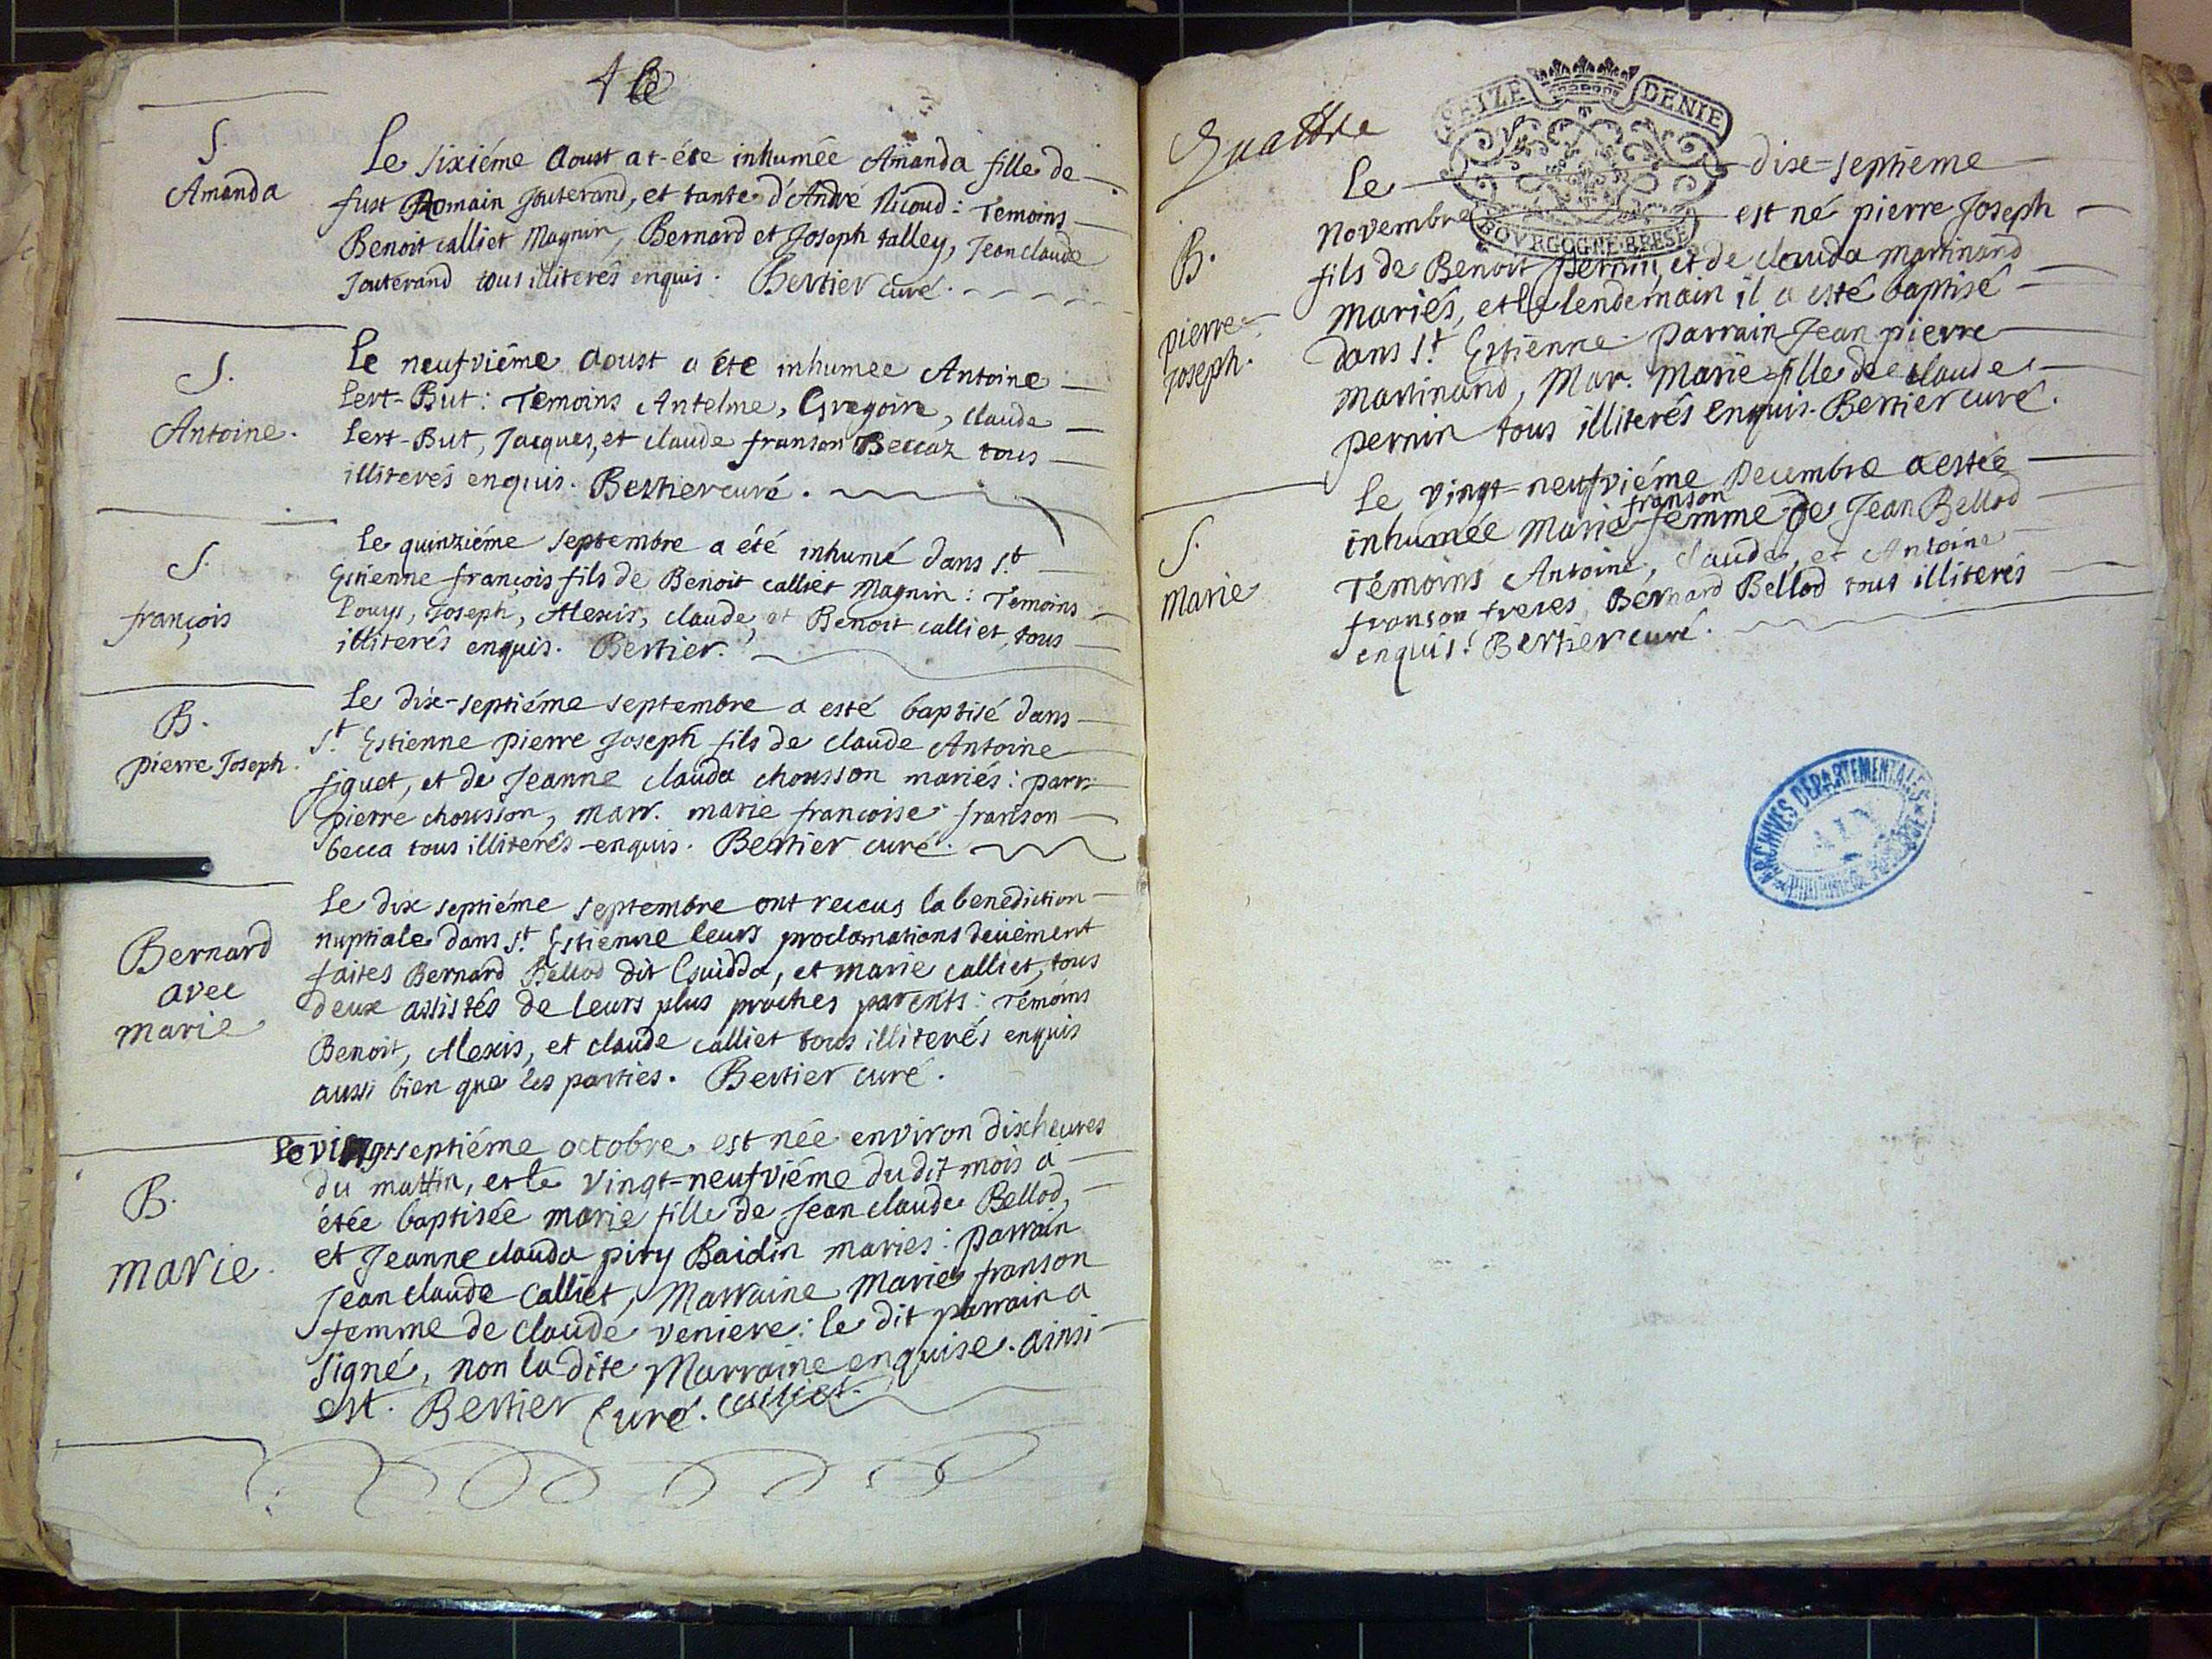 S.
Amanda
Le sixiéme Aoust at-éte inhumée Amanda fille de
fust Romain Jouterand, et tante d'André Nicoud: Temoins
Benoit calliet Magnin, Bernard et Joseph talley, Jean claude
Jouterand tous illiterés enquis. Bertier curé.
S.
Antoine.
Le neufviéme Aoust a éte inhumee Antoine
Lert-But: Temoins Antelme, Gregoire, claude
Lert-But, Jacques, et claude franson Beccaz tous
illiterés enquis. Bertier curé.
S.
françois
Le quinziéme septembre a été inhumé dans St
Estienne françois fils de Benoit calliet Magnin: Temoins
Louys, Joseph, Alexis, claude, et Benoit calliet, tous
illiterés enquis. Bertier.
B.
pierre Joseph.
Le dix-septiéme septembre a esté baptisé dans
St Estienne pierre Joseph fils de claude Antoine
figuet, et de Jeanne clauda chousson mariés: parr.
pierre chousson, marr. marie francoise franson
becca tous illiterés enquis. Bertier curé.
Bernard
avec
marie
Le dix septiéme septembre ont receus la benediction
nuptiale dans St Estienne leurs proclamations deuëment
faites Bernard Bellod dit Guidda, et marie calliet, tous
deux assistés de leurs plus proches parents: Témoins
Benoit, Alexis, et claude calliet tous illiterés enquis
aussi bien que les parties. Bertier curé.
B.
marie.
Le vingt septiéme octobre est née environ dix heures
du mattin, et le vingt-neufviéme du dit mois a
étée baptisée marie fille de Jean claude Bellod,
et Jeanne clauda piry Baidin mariés: parrain
Jean claude Calliet, Marraine Marie franson
femme de claude veniere: le dit parrain a
signé, non la dite Marraine enquise. ainsi
est. Bertier Curé. calliet.
Quattre
SEIZE DENIE
BOVRGOGNE BRESE
B.
pierre
Joseph.
Le dix-septieme
Novembre est né pierre Joseph
fils de Benoit pernin, et de clauda martinand
mariés, et le lendemain il a esté baptisé
dans St Estienne parrain Jean pierre
martinand, Mar. Marie fille de claude
pernin tous illiterés enquis. Bertier curé.
S.
Marie
Le vingt-neufviéme Decembre a estée
franson
inhumée Marie femme de Jean Bellod
Temoins Antoine, claude, et Antoine
franson freres, Bernard Bellod tous illiterés
enquis. Bertier curé.
ARCHIVES DÉPARTEMENTALES
AIN